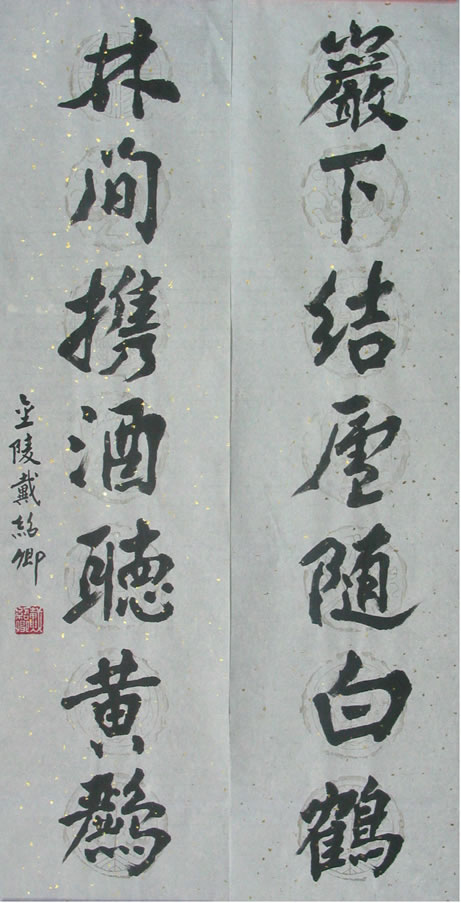 巖下結廬随白鶴
林間携酒聽黄鸝
金陵戴紹卿